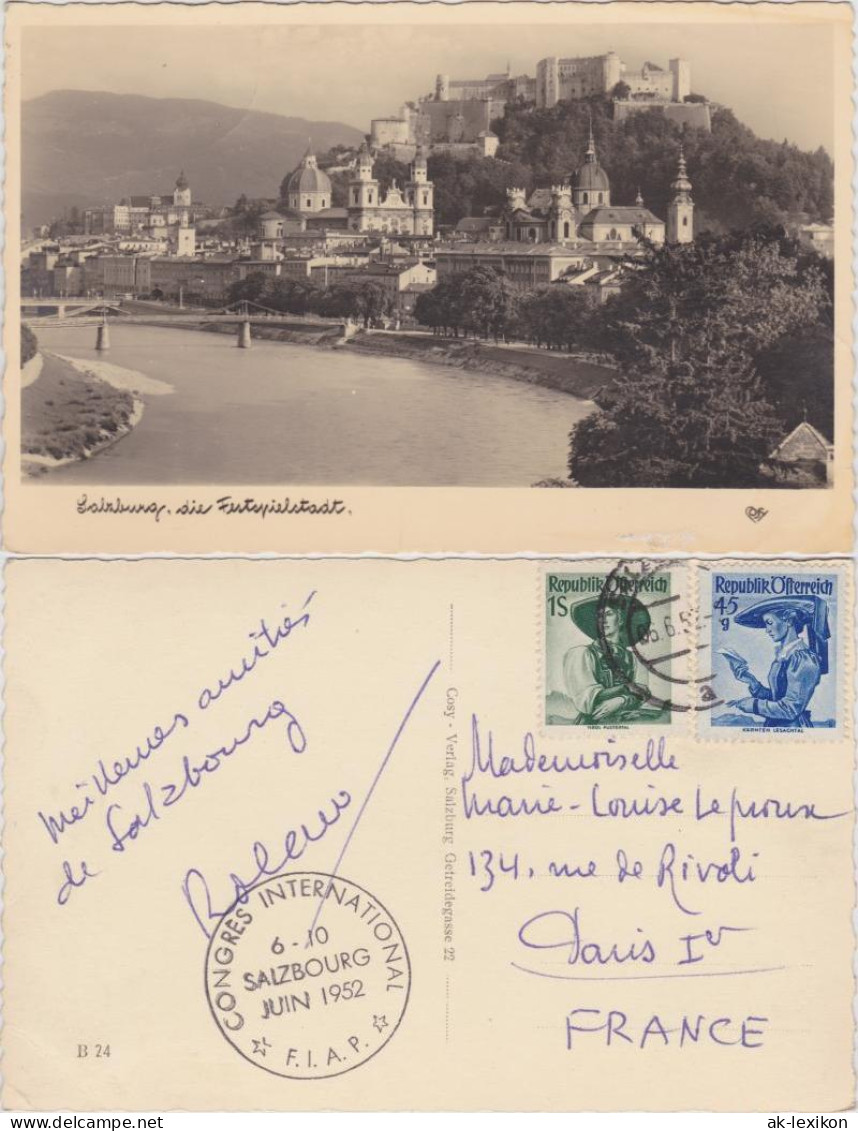 Salzburg, die Festspielstadt.
Meilleures amitiés
de Salzbourg
CONGRES INTERNATIONAL
6-10
SALZBOURG
JUIN 1952
F.I.A.P.
B 24
Cosy - Verlag, Salzburg Getreidegasse 22
Republik Österreich
1S
TIROL PUSTERTAL
Republik Österreich
45
g
KÄRNTEN LESACHTAL
a
Mademoiselle
Marie-Louise Leproux
134, rue de Rivoli
Paris Ier
FRANCE
ak-lexikon.com